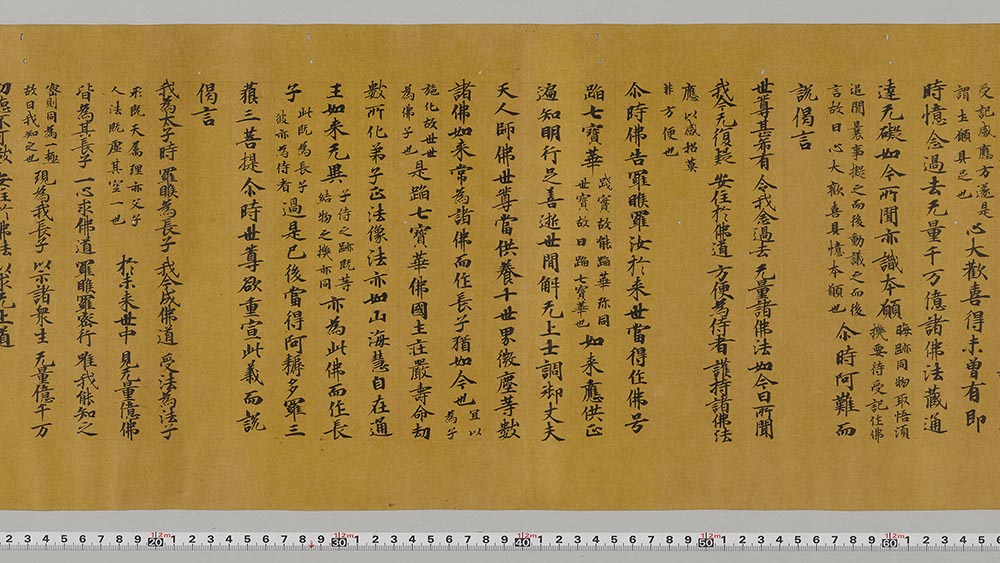 受記感應方遂是
謂土願具足也
心大歡喜得未曾有即
時憶念過去无量千万億諸佛法藏通
達无礙如今所聞亦識本願
晦跡同物取悟須
機要待受記任佛
追聞曩事擬之而後動議之而後
言故曰心大歡喜具憶本願也
尒時阿難而
說偈言
世尊甚希有 令我念過去 无量諸佛法 如今日所聞
我今无復疑 安住於佛道 方便為侍者 護持諸佛法
應以感招莫
非方便也
尒時佛告羅睺羅汝於来世當得作佛号
蹈七寶華
踐寶故能蹈華弥同
世寶故曰蹈七寶華也
如来應供正
遍知明行足善逝世間解无上士調御丈夫
天人師佛世尊當供養十世界微塵等數
諸佛如来常為諸佛而作長子猶如今也
宜以
為子
施化故世世
為佛子也
是蹈七寶華佛國土莊嚴壽命劫
數所化弟子正法像法亦如山海慧自在通
王如来无異
子侍之跡既等
結物之撫亦同
亦為此佛而作長
子
此既為長子
彼亦為侍者
過是已後當得阿耨多羅三
藐三菩提尒時世尊欲重宣此義而說
偈言
我為太子時 羅睺為長子 我今成佛道 受法為法子
形既天属理亦父子
人法既虚其空一也
於未来世中 見无量億佛
皆為其長子 一心求佛道 羅睺羅密行 唯我能知之
密則同為一極
故曰我知之也
現為我長子 以示諸衆生 无量億千万
功德不可數 安住於佛法 以求无上道